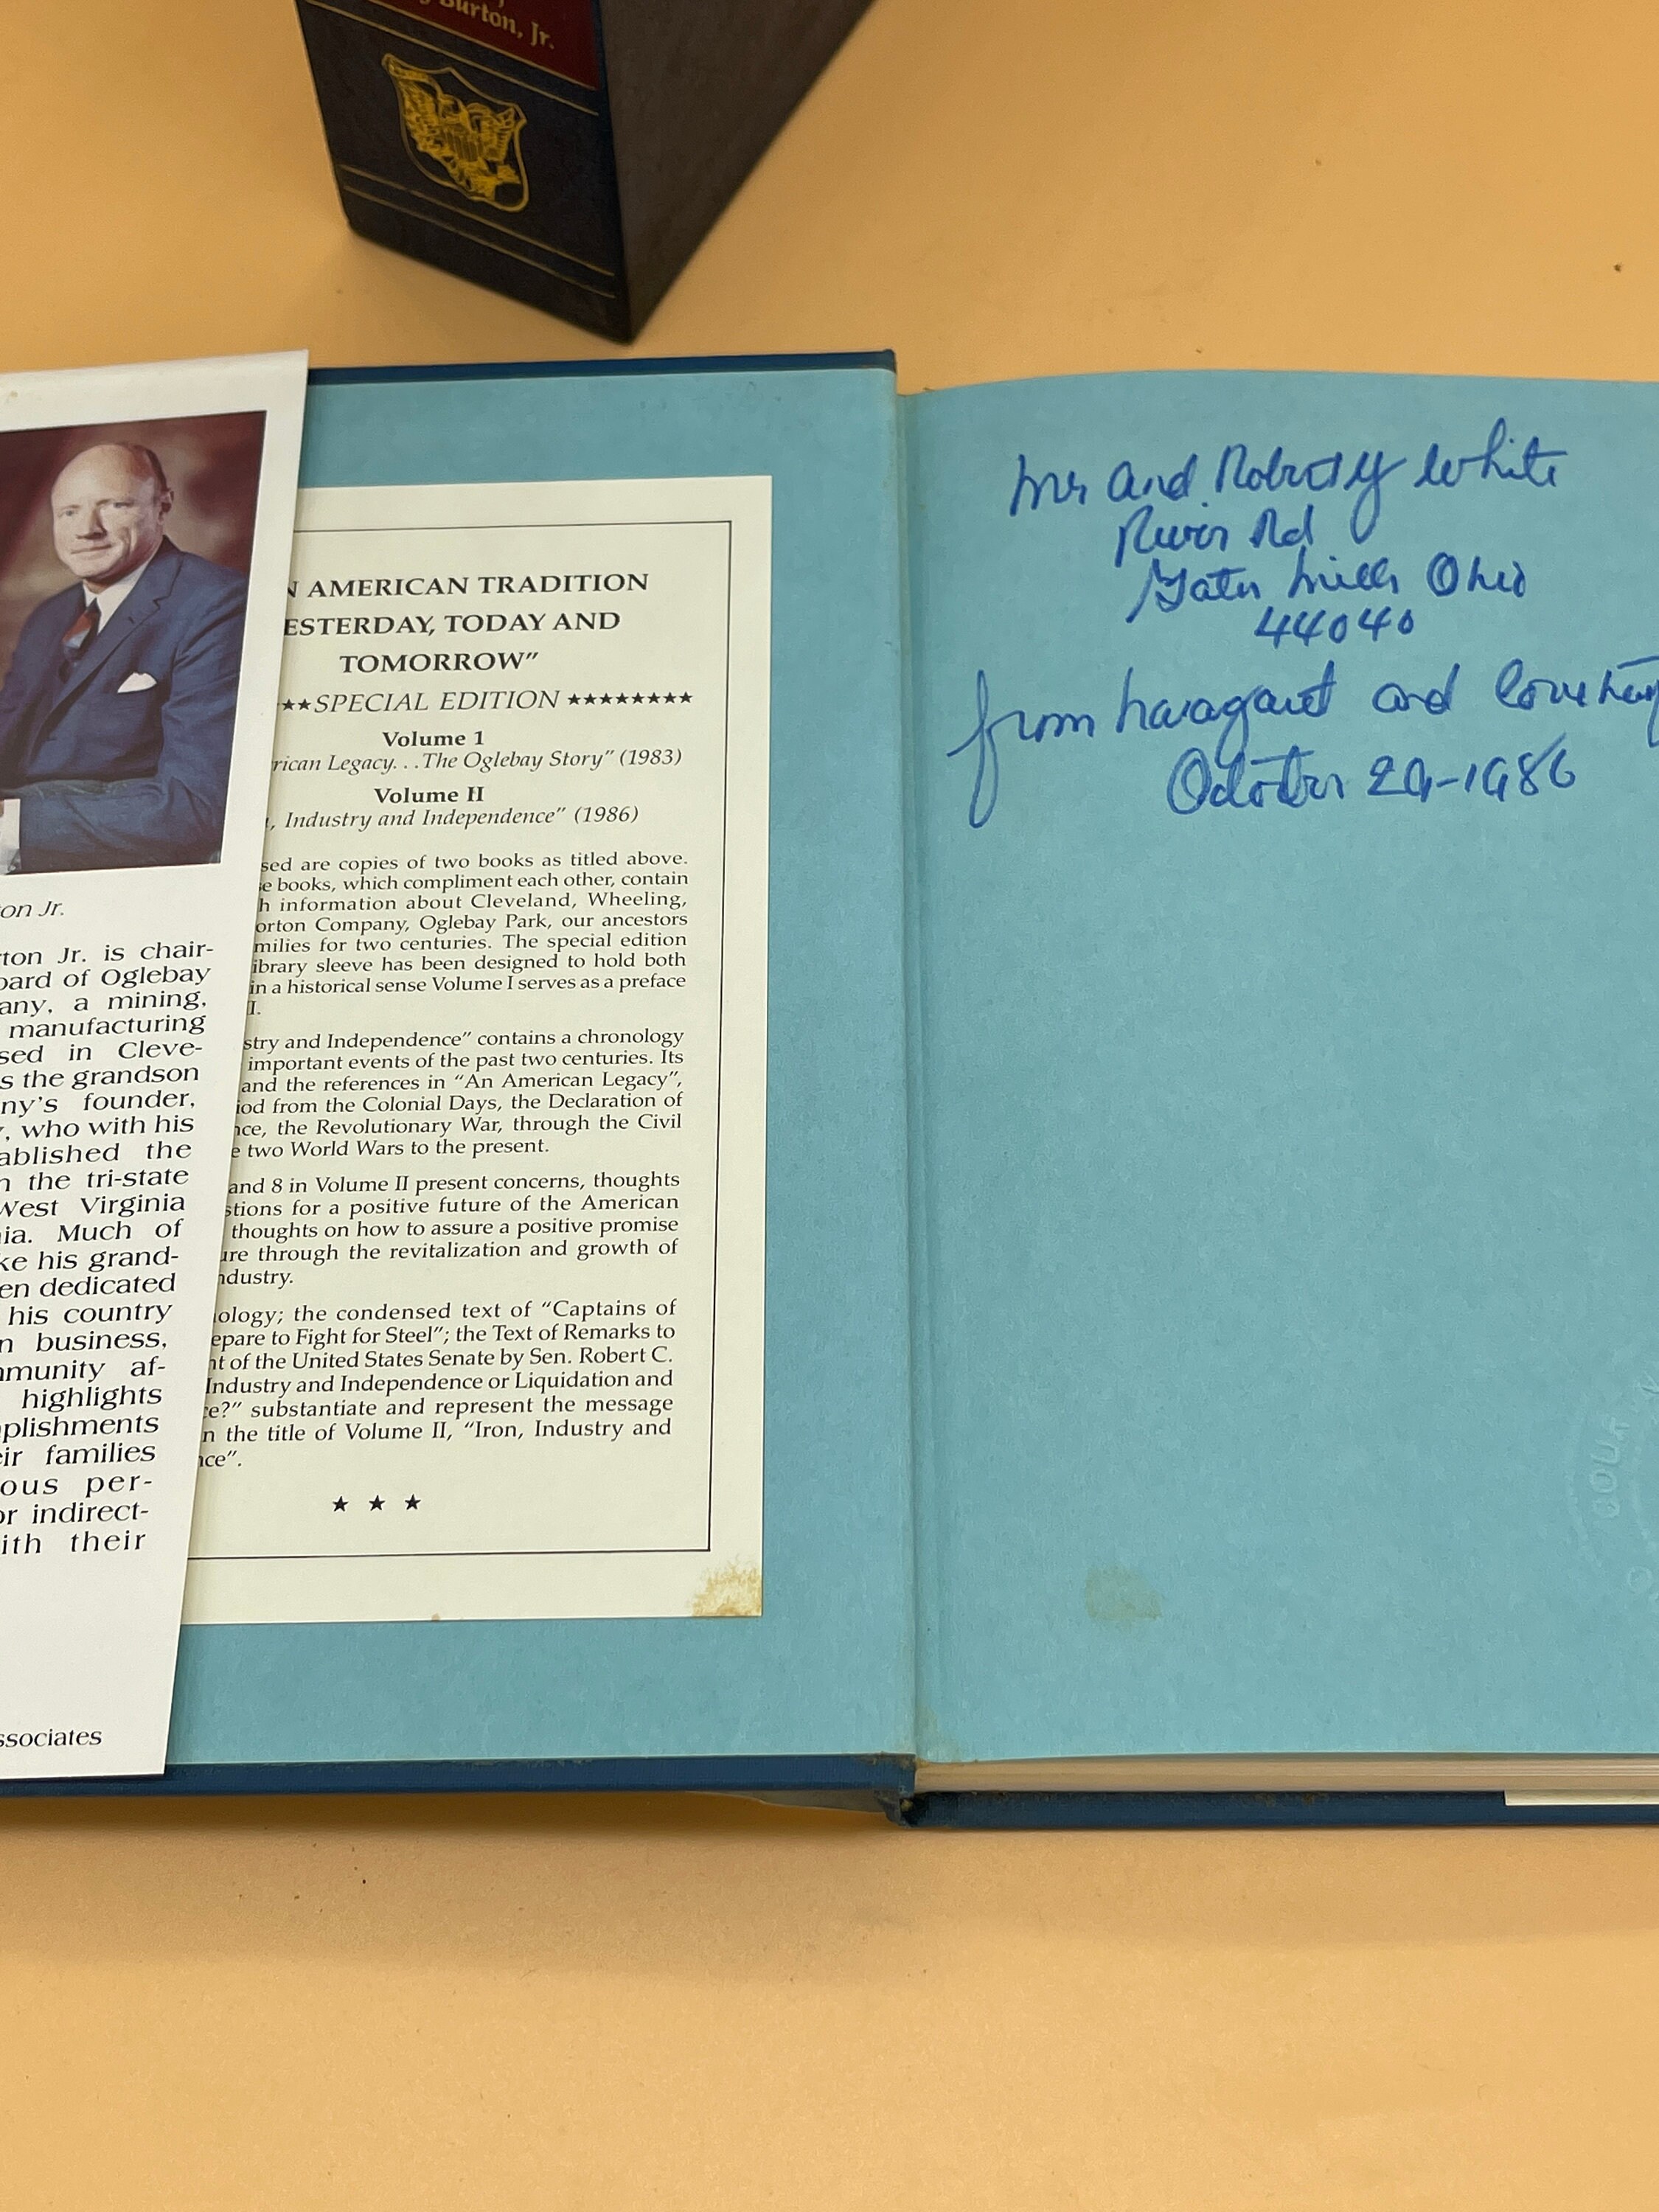 y Burton, Jr.
on Jr.
ton Jr. is chair-
oard of Oglebay
any, a mining,
manufacturing
sed in Cleve-
s the grandson
ny's founder,
y, who with his
ablished the
n the tri-state
West Virginia
nia. Much of
ke his grand-
en dedicated
his country
n business,
mmunity af-
highlights
plishments
eir families
ous per-
or indirect-
ith their
ssociates
N AMERICAN TRADITION
ESTERDAY, TODAY AND
TOMORROW”
★★SPECIAL EDITION ★★★★★★★★
Volume 1
rican Legacy. . .The Oglebay Story” (1983)
Volume II
, Industry and Independence” (1986)
sed are copies of two books as titled above.
e books, which compliment each other, contain
h information about Cleveland, Wheeling,
orton Company, Oglebay Park, our ancestors
milies for two centuries. The special edition
ibrary sleeve has been designed to hold both
in a historical sense Volume I serves as a preface
I.
stry and Independence” contains a chronology
important events of the past two centuries. Its
and the references in “An American Legacy”,
iod from the Colonial Days, the Declaration of
nce, the Revolutionary War, through the Civil
e two World Wars to the present.
and 8 in Volume II present concerns, thoughts
stions for a positive future of the American
thoughts on how to assure a positive promise
ure through the revitalization and growth of
ndustry.
ology; the condensed text of “Captains of
epare to Fight for Steel”; the Text of Remarks to
nt of the United States Senate by Sen. Robert C.
Industry and Independence or Liquidation and
ce?” substantiate and represent the message
n the title of Volume II, “Iron, Industry and
nce”.
★ ★ ★
Mr and White
River Rd
Gates Mills Ohio
44040
from Margaret and Courtney
October 29-1986
COUR